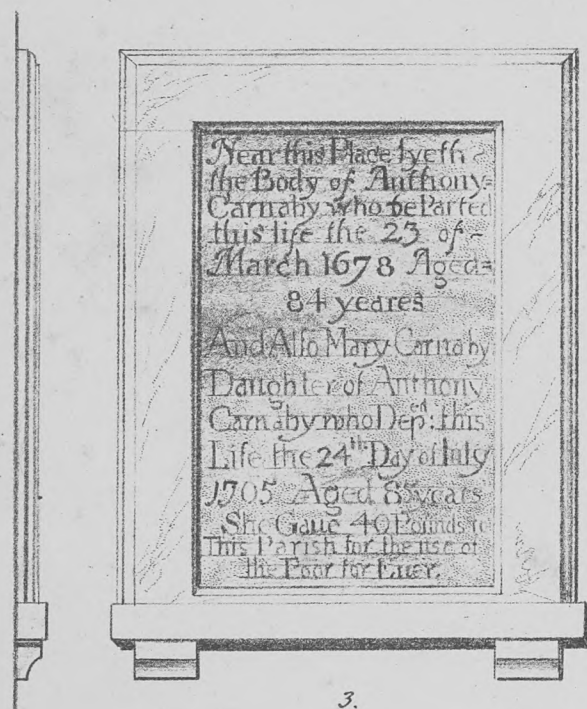 Near this Place lyeth
the Body of Anthony=
Carnaby who dePartted
this life the 23 of
March 1678 Aged=
84 yeares
And Also Mary Carnaby
Daughter of Anthony
Carnaby who Depd: this
Life the 24th Day of July
1705 Aged 85 years
She Gaue 40 Pounds to
This Parish for the use of
the Poor for Euer.
3.